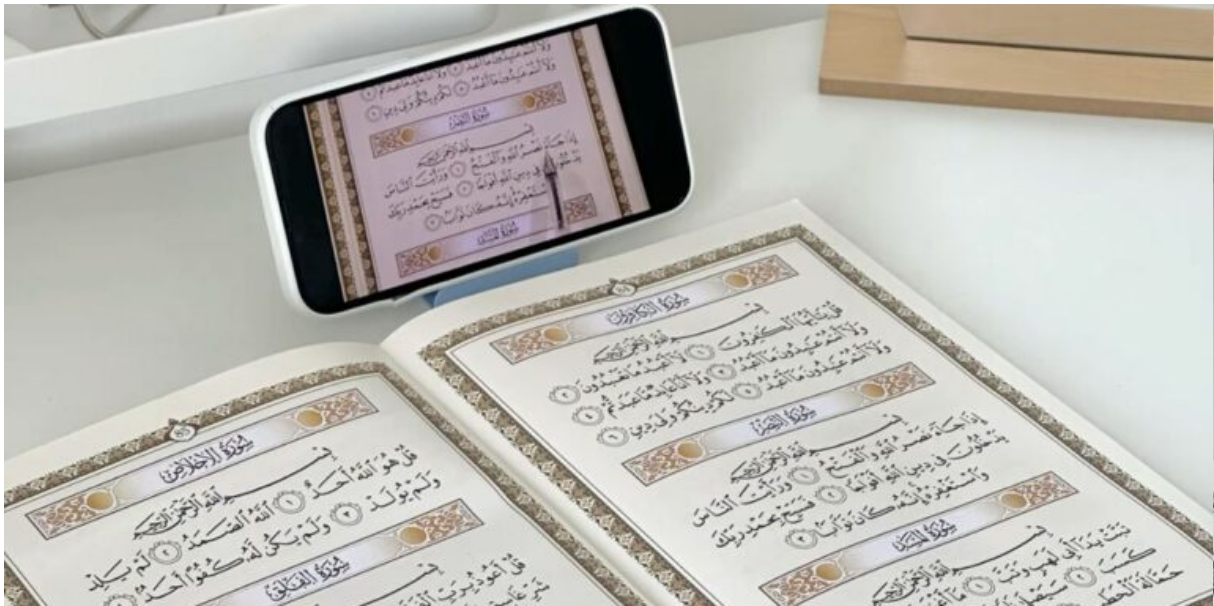 وَلَا أَنتُمْ عَٰبِدُونَ مَا أَعْبُدُ ٣ وَلَا أَنَا عَابِدٌ مَّا عَبَدتُّمْ ٤
وَلَا أَنتُمْ عَٰبِدُونَ مَا أَعْبُدُ ٥ لَكُمْ دِينُكُمْ وَلِيَ دِينِ ٦
سُورَةُ النَّصْرِ
بِسْمِ اللَّهِ الرَّحْمَٰنِ الرَّحِيمِ
إِذَا جَاءَ نَصْرُ اللَّهِ وَالْفَتْحُ ١ وَرَأَيْتَ النَّاسَ
يَدْخُلُونَ فِي دِينِ اللَّهِ أَفْوَاجًا ٢ فَسَبِّحْ بِحَمْدِ رَبِّكَ
اسْتَغْفِرْهُ إِنَّهُ كَانَ تَوَّابًا ٣
سُورَةُ المَسَدِ
سُورَةُ الكَافِرُونَ
بِسْمِ اللَّهِ الرَّحْمَٰنِ الرَّحِيمِ
قُلْ يَٰأَيُّهَا الْكَٰفِرُونَ ١ لَا أَعْبُدُ مَا تَعْبُدُونَ ٢
وَلَا أَنتُمْ عَٰبِدُونَ مَا أَعْبُدُ ٣ وَلَا أَنَا عَابِدٌ مَّا عَبَدتُّمْ ٤
وَلَا أَنتُمْ عَٰبِدُونَ مَا أَعْبُدُ ٥ لَكُمْ دِينُكُمْ وَلِيَ دِينِ ٦
سُورَةُ النَّصْرِ
بِسْمِ اللَّهِ الرَّحْمَٰنِ الرَّحِيمِ
إِذَا جَاءَ نَصْرُ اللَّهِ وَالْفَتْحُ ١ وَرَأَيْتَ النَّاسَ
يَدْخُلُونَ فِي دِينِ اللَّهِ أَفْوَاجًا ٢ فَسَبِّحْ بِحَمْدِ رَبِّكَ
وَاسْتَغْفِرْهُ إِنَّهُ كَانَ تَوَّابًا ٣
سُورَةُ المَسَدِ
بِسْمِ اللَّهِ الرَّحْمَٰنِ الرَّحِيمِ
تَبَّتْ يَدَا أَبِي لَهَبٍ وَتَبَّ ١ مَا
كَسَبَ ٢ سَيَصْلَىٰ
حَمَّالَةَ الْحَطَبِ
سُورَةُ الإِخْلَاصِ
بِسْمِ اللَّهِ الرَّحْمَٰنِ الرَّحِيمِ
قُلْ هُوَ اللَّهُ أَحَدٌ ١ اللَّهُ الصَّمَدُ ٢ لَمْ يَلِدْ
وَلَمْ يُولَدْ ٣ وَلَمْ يَكُن لَّهُ كُفُوًا أَحَدٌ ٤
سُورَةُ الفَلَقِ
بِسْمِ
قُلْ أَعُوذُ بِرَبِّ
شَرِّ